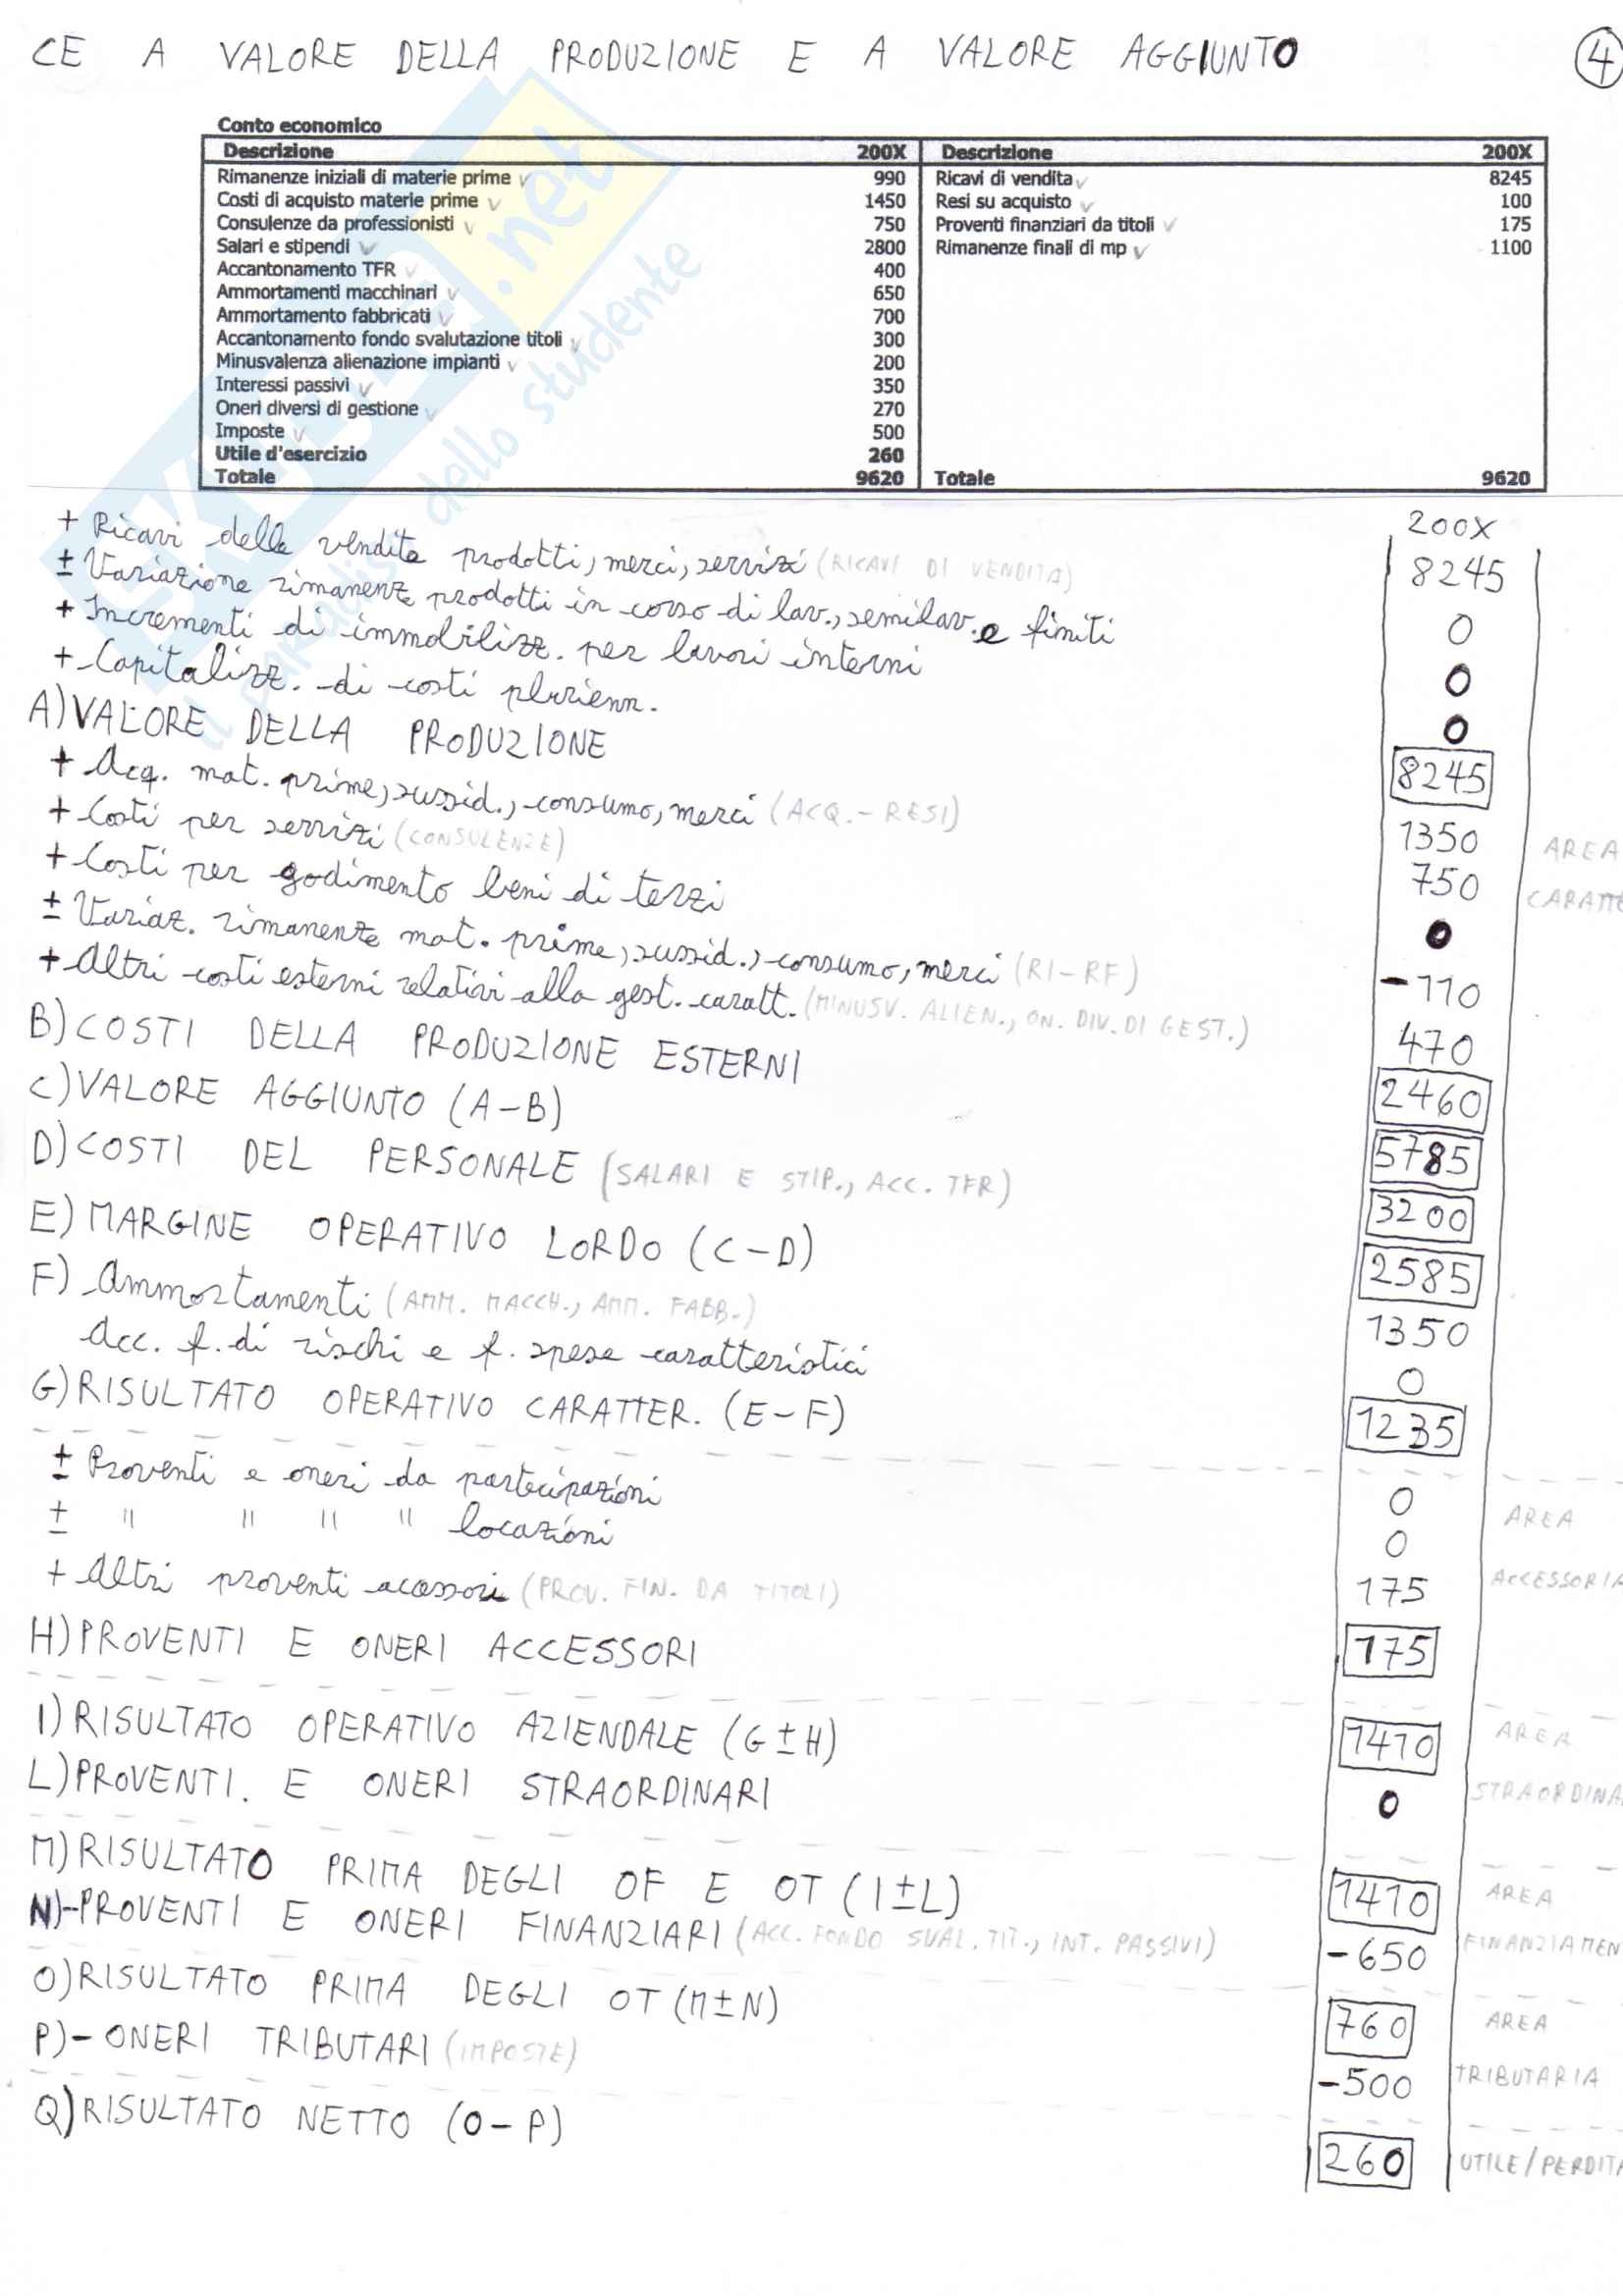 CE A VALORE DELLA PRODUZIONE E A VALORE AGGIUNTO 4
Conto economico
Descrizione 200X Descrizione 200X
Rimanenze iniziali di materie prime 990 Ricavi di vendita 8245
Costi di acquisto materie prime 1450 Resi su acquisto 100
Consulenze da professionisti 750 Proventi finanziari da titoli 175
Salari e stipendi 2800 Rimanenze finali di mp 1100
Accantonamento TFR 400
Ammortamenti macchinari 650
Ammortamento fabbricati 700
Accantonamento fondo svalutazione titoli 300
Minusvalenza alienazione impianti 200
Interessi passivi 350
Oneri diversi di gestione 270
Imposte 500
Utile d'esercizio 260
Totale 9620 Totale 9620
200X
+ Ricavi delle vendite prodotti, merci, servizi (RICAVI DI VENDITA) 8245
± Variazione rimanenze prodotti in corso di lav., semilav. e finiti 0
+ Incrementi di immobilizz. per lavori interni 0
+ Capitalizz. di costi plurienn. 0
A) VALORE DELLA PRODUZIONE 8245
+ Acq. mat. prime, sussid., consumo, merci (ACQ. - RESI) 1350 AREA
+ Costi per servizi (CONSULENZE) 750 CARATTE
+ Costi per godimento beni di terzi 0
± Variaz. rimanenze mat. prime, sussid., consumo, merci (RI - RF) -110
+ Altri costi esterni relativi alla gest. caratt. (MINUSV. ALIEN., ON. DIV. DI GEST.) 470
B) COSTI DELLA PRODUZIONE ESTERNI 2460
C) VALORE AGGIUNTO (A-B) 5785
D) COSTI DEL PERSONALE (SALARI E STIP., ACC. TFR) 3200
E) MARGINE OPERATIVO LORDO (C-D) 2585
F) Ammortamenti (AMM. MACCH., AMM. FABB.) 1350
Acc. f. di rischi e f. spese caratteristici 0
G) RISULTATO OPERATIVO CARATTER. (E-F) 1235
± Proventi e oneri da partecipazioni 0
± " " " " locazioni 0 AREA
+ Altri proventi accessori (PROV. FIN. DA TITOLI) 175 ACCESSORIA
H) PROVENTI E ONERI ACCESSORI 175
I) RISULTATO OPERATIVO AZIENDALE (G±H) 1410 AREA
L) PROVENTI. E ONERI STRAORDINARI 0 STRAORDINA
M) RISULTATO PRIMA DEGLI OF E OT (I±L) 1410 AREA
N) - PROVENTI E ONERI FINANZIARI (ACC. FONDO SVAL. TIT., INT. PASSIVI) -650 FINANZIAMEN
O) RISULTATO PRIMA DEGLI OT (M±N) 760 AREA
P) - ONERI TRIBUTARI (IMPOSTE) -500 TRIBUTARIA
Q) RISULTATO NETTO (O-P) 260 UTILE/PERDITA
SKUOLA.net
il paradiso dello studente